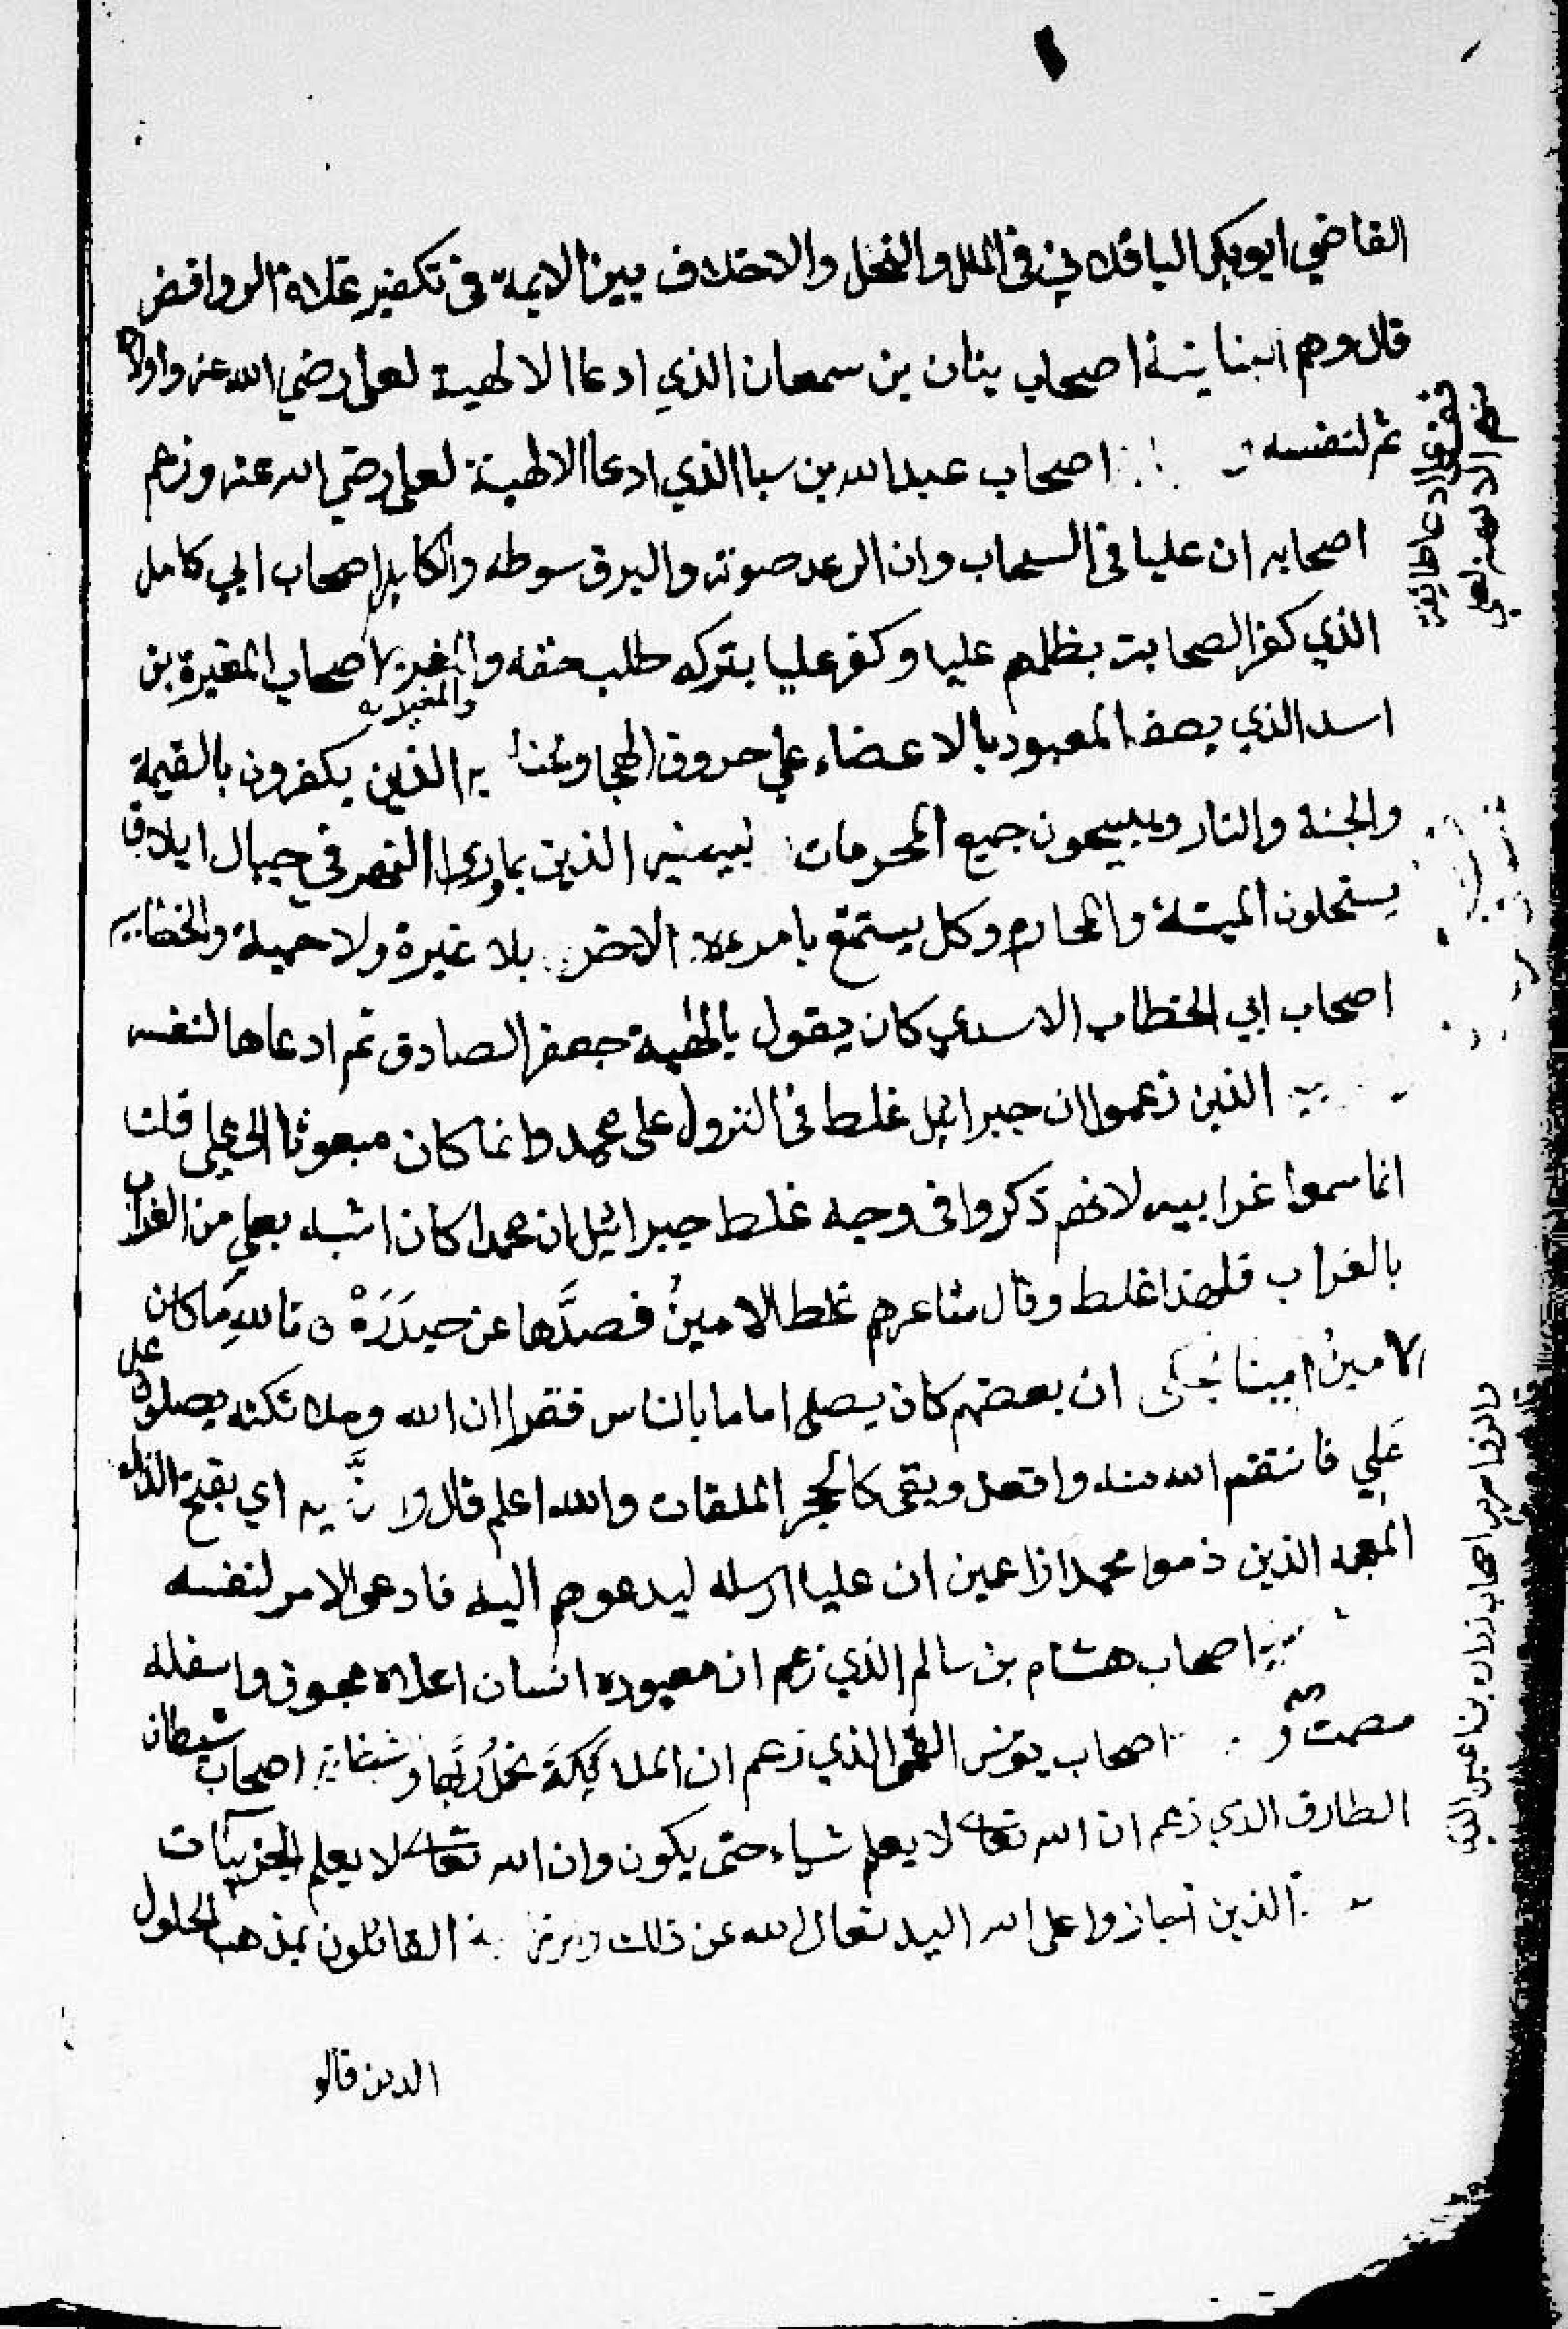 القاضي ابوبكر الباقلاني في الملل والنحل والاختلاف بين الايمة في تكفير غلاة الروافض
قال وهم البنانية اصحاب بنان بن سمعان الذي ادعا الالهية لعلي رضي الله عنه واولاده
ثم لنفسه و اصحاب عبدالله بن سبا الذي ادعا الالهية لعلي رضي الله عنه وزعم
اصحابه ان عليا في السحاب وان الرعد صوته والبرق سوطه والكاملية اصحاب ابي كامل
الذي كفر الصحابة بظلمهم عليا وكفر عليا بتركه طلب حقه والمغيرية اصحاب المغيرة بن
اسد الذي يصف المعبود بالاعضاء علي حروف الهجا الذين يكفرون بالقيمة
والجنة والنار ويبيحون جميع المحرمات الذين بماورا النهر في جبال ايلاق
يستحلون الميتة والمحارم وكل يستمتع بامرءة الاخر بلا غيرة ولا حمية والخطابيه
اصحاب ابي الخطاب الاسدي كان يقول بالهية جعفر الصادق ثم ادعاها لنفسه
الذين زعموا ان جبرائيل غلط في النزول على محمد وانما كان مبعوثا الى علي قلت
انما سموا غرابيه لانهم ذكروا في وجه غلط جبرائيل ان محمدا كان اشبه بعلي من الغراب
بالغراب فلهذا غلط وقال شاعرهم غلط الامينُ فصدَّها عن حيدَرَهْ تاللهِ مَاكان
الامينُ امينا يحكى ان بعضهم كان يصلي اماما بالناس فقرا ان الله وملائكته يصلون على
عَلي فانتقم الله منه واقعد وبقى كالحجر الملقات والله اعلم قال و اي بفتح الذال
المعجمه الذين ذموا محمدا زاعمين ان عليا ارسله ليدعوهم اليه فادعى الامر لنفسه
اصحاب هشام بن سالم الذي زعم ان معبوده انسان اعلاه مجوف واسفله
مصمت و اصحاب يونس القمي الذي زعم ان الملائِكةَ تحملُ رَبَّها و اصحاب شيطان
الطارق الذي زعم ان الله تعالى لا يعلم شياء حتى يكون وان الله تعالى لا يعلم الجزييات
الذين اجازوا على الله اليد تعالى الله عن ذلك القائلون بمذهب الحلول
الذين قالو
والمغيريه
ادعا طائفة
منهم الالهية لعلي
اصحاب زراره بن اعين الذي